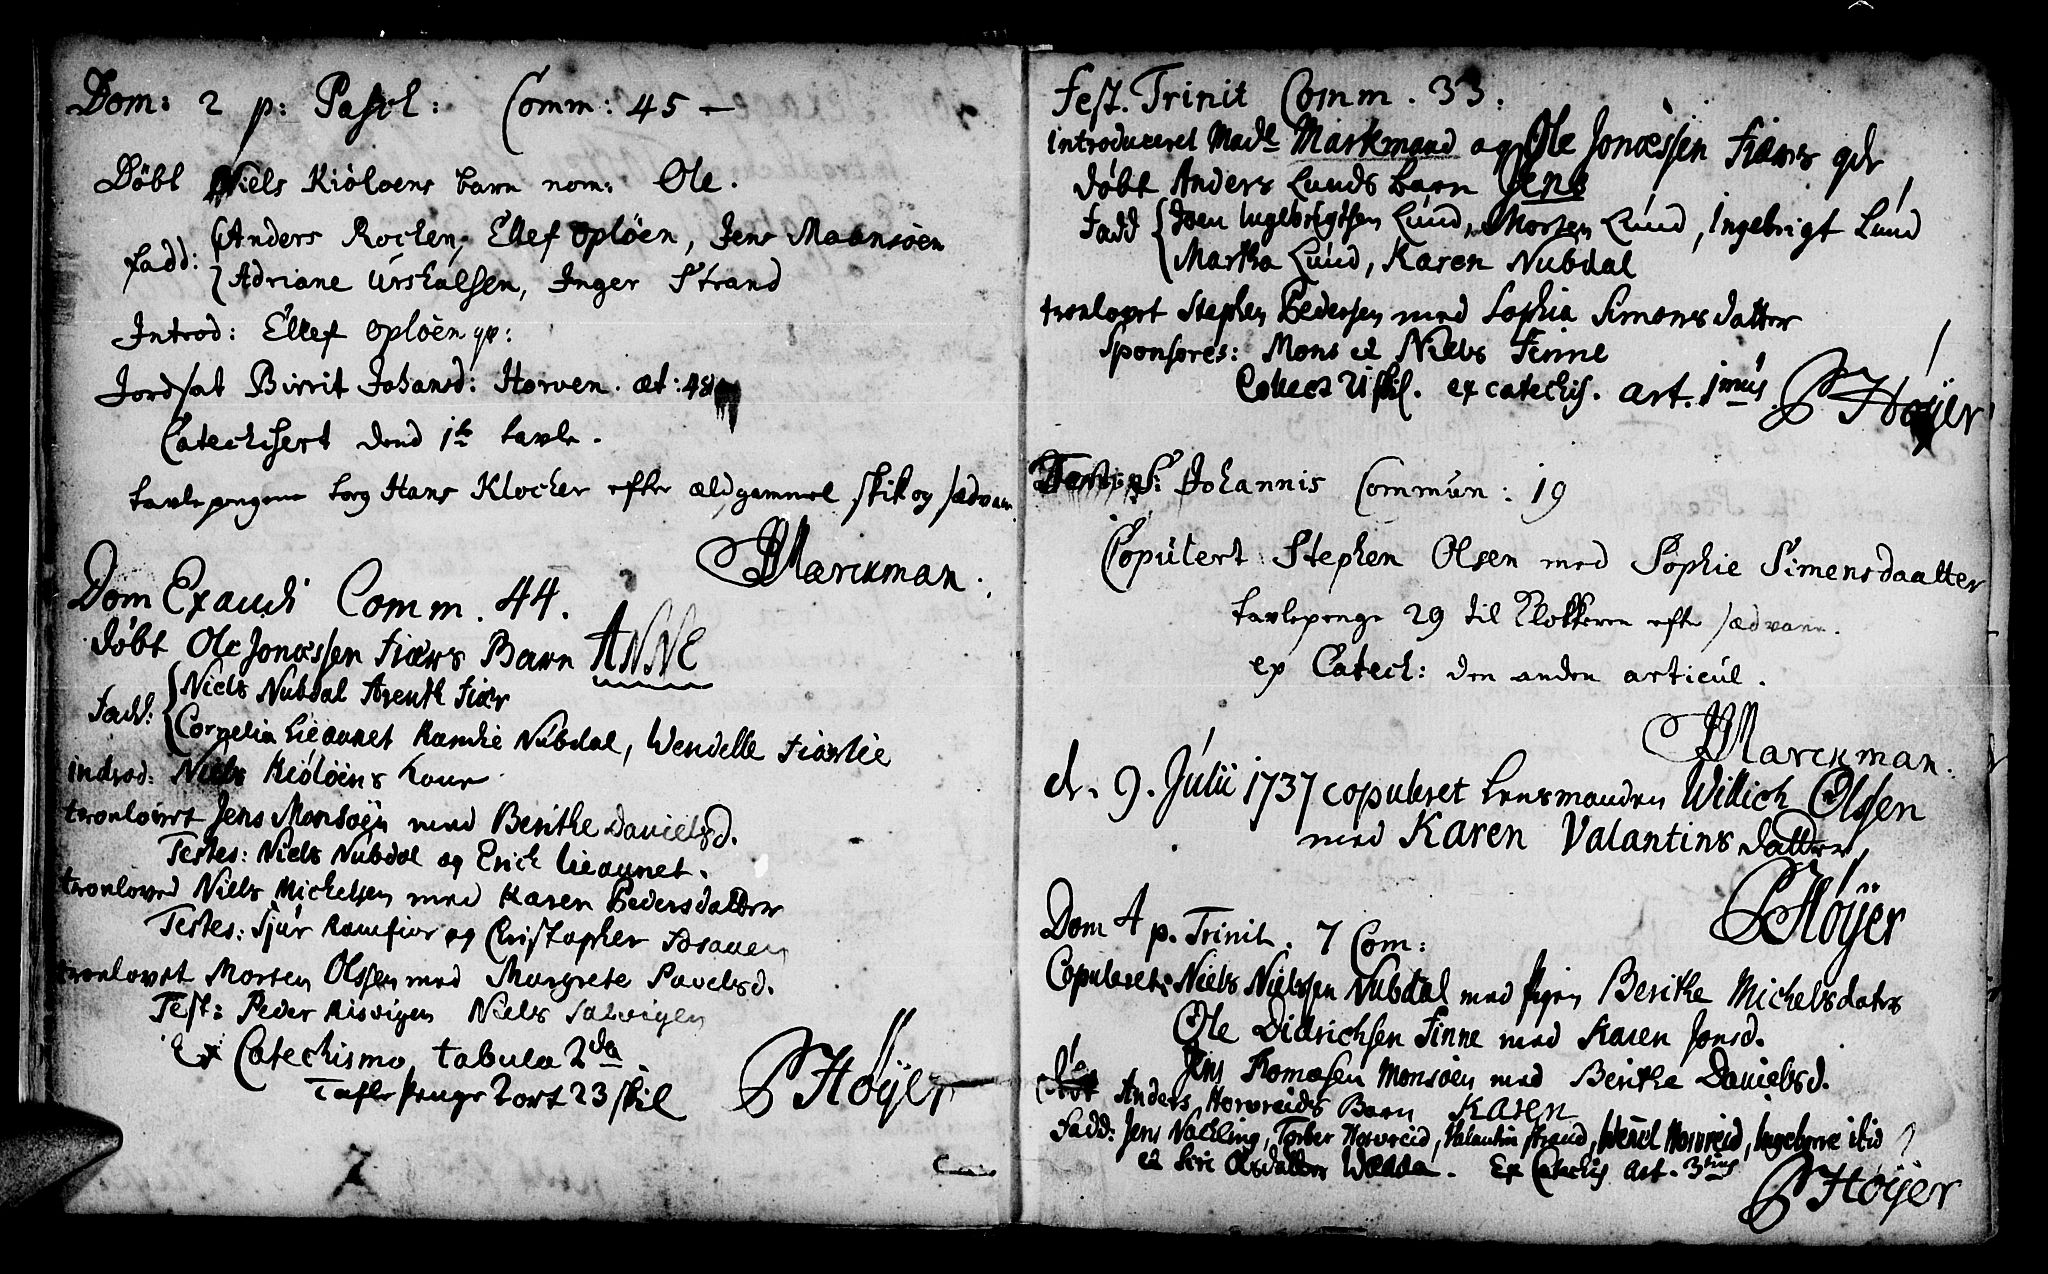 Dom: 2 p: Pasch: Comm: 45 —
Döbt Niels Kiöloens barn nom: Ole.
fadd: Anders Rochen, Ellef Oplöen, Jens Maansöen
Adriane Urskalsen, Inger Strand
Introd: Ellef Oplöen qv:
Jordsat Birrit Johansd: Horven. æt: 48
Catechisert dend 1te tavle.
tavlepengene tog Hans Klocher efter ældgammel skik og sædvane.
Marckman.
Dom Exaudi Comm. 44.
döbt Ole Jonæssen Fiærs Barn ANNE
Fadd: Niels Nubdal Arent Fiær
Cornelia Lieaunet Randie Nubdal, Wendelle Fiærlie
indrod: Niels Kiölöens Kone
troelovet Jens Monsöen med Berithe Danielsd.
Testes: Niels Nubdal og Erich Lieaunet.
troeloved Niels Michelsen med Karen Pedersdatter
Testes: Sjur Ramfior og Christopher
troelovet Morten Olssen med Margrete Pavelsd.
Test: Peder Risvigen Niels Salvigen
Ex Catechismo tabula 2da.
Tafle penge 2 ort 23 skil
Höyer
Fest. Trinit Comm. 33.
introduceret Made Markmand og Ole Jonæssen Fiærs qv
döbt Anders Lunds barn Jens
Fadd Joen Ingebrigtsen Lund, Morten Lund, Ingebrigt Lund
Martha Lund, Karen Nubdal
troelovet Stephen Pedersen med Sophia Simonsdatter
Sponsores: Mons et Niels Finne
Collect 21 skil. ex catechis. art. 1mus.
Höyer
Fest: S: Johannis Commun: 19
Copulert Stephen Olsen med Sophie Simensdaatter
tavlepenge 29 til Klokkeren efter sædvane.
ex Catech: den anden articul.
Marckman.
d. 9. Julii 1737 copuleret Lensmanden Willich Olssen
med Karen Valantins datter
Höyer
Dom 4 p. Trinit. 7 Com:
Copuleret: Niels Nielssen Nubdal med pigen Berithe Michelsdater
Ole Didrichsen Finne med Karen Jonsd.
Jens Tomæsen Monsöen med Berithe Danielsd.
döbt Anders Horvreids Barn KAREN
Fadd: Jens Nachling, Torber Horvreid, Valantin Strand, Wenel Horvreid, Ingeborre
et Siri Olsdatter Wedde. Ex Catechis Art. 3tius
Höyer